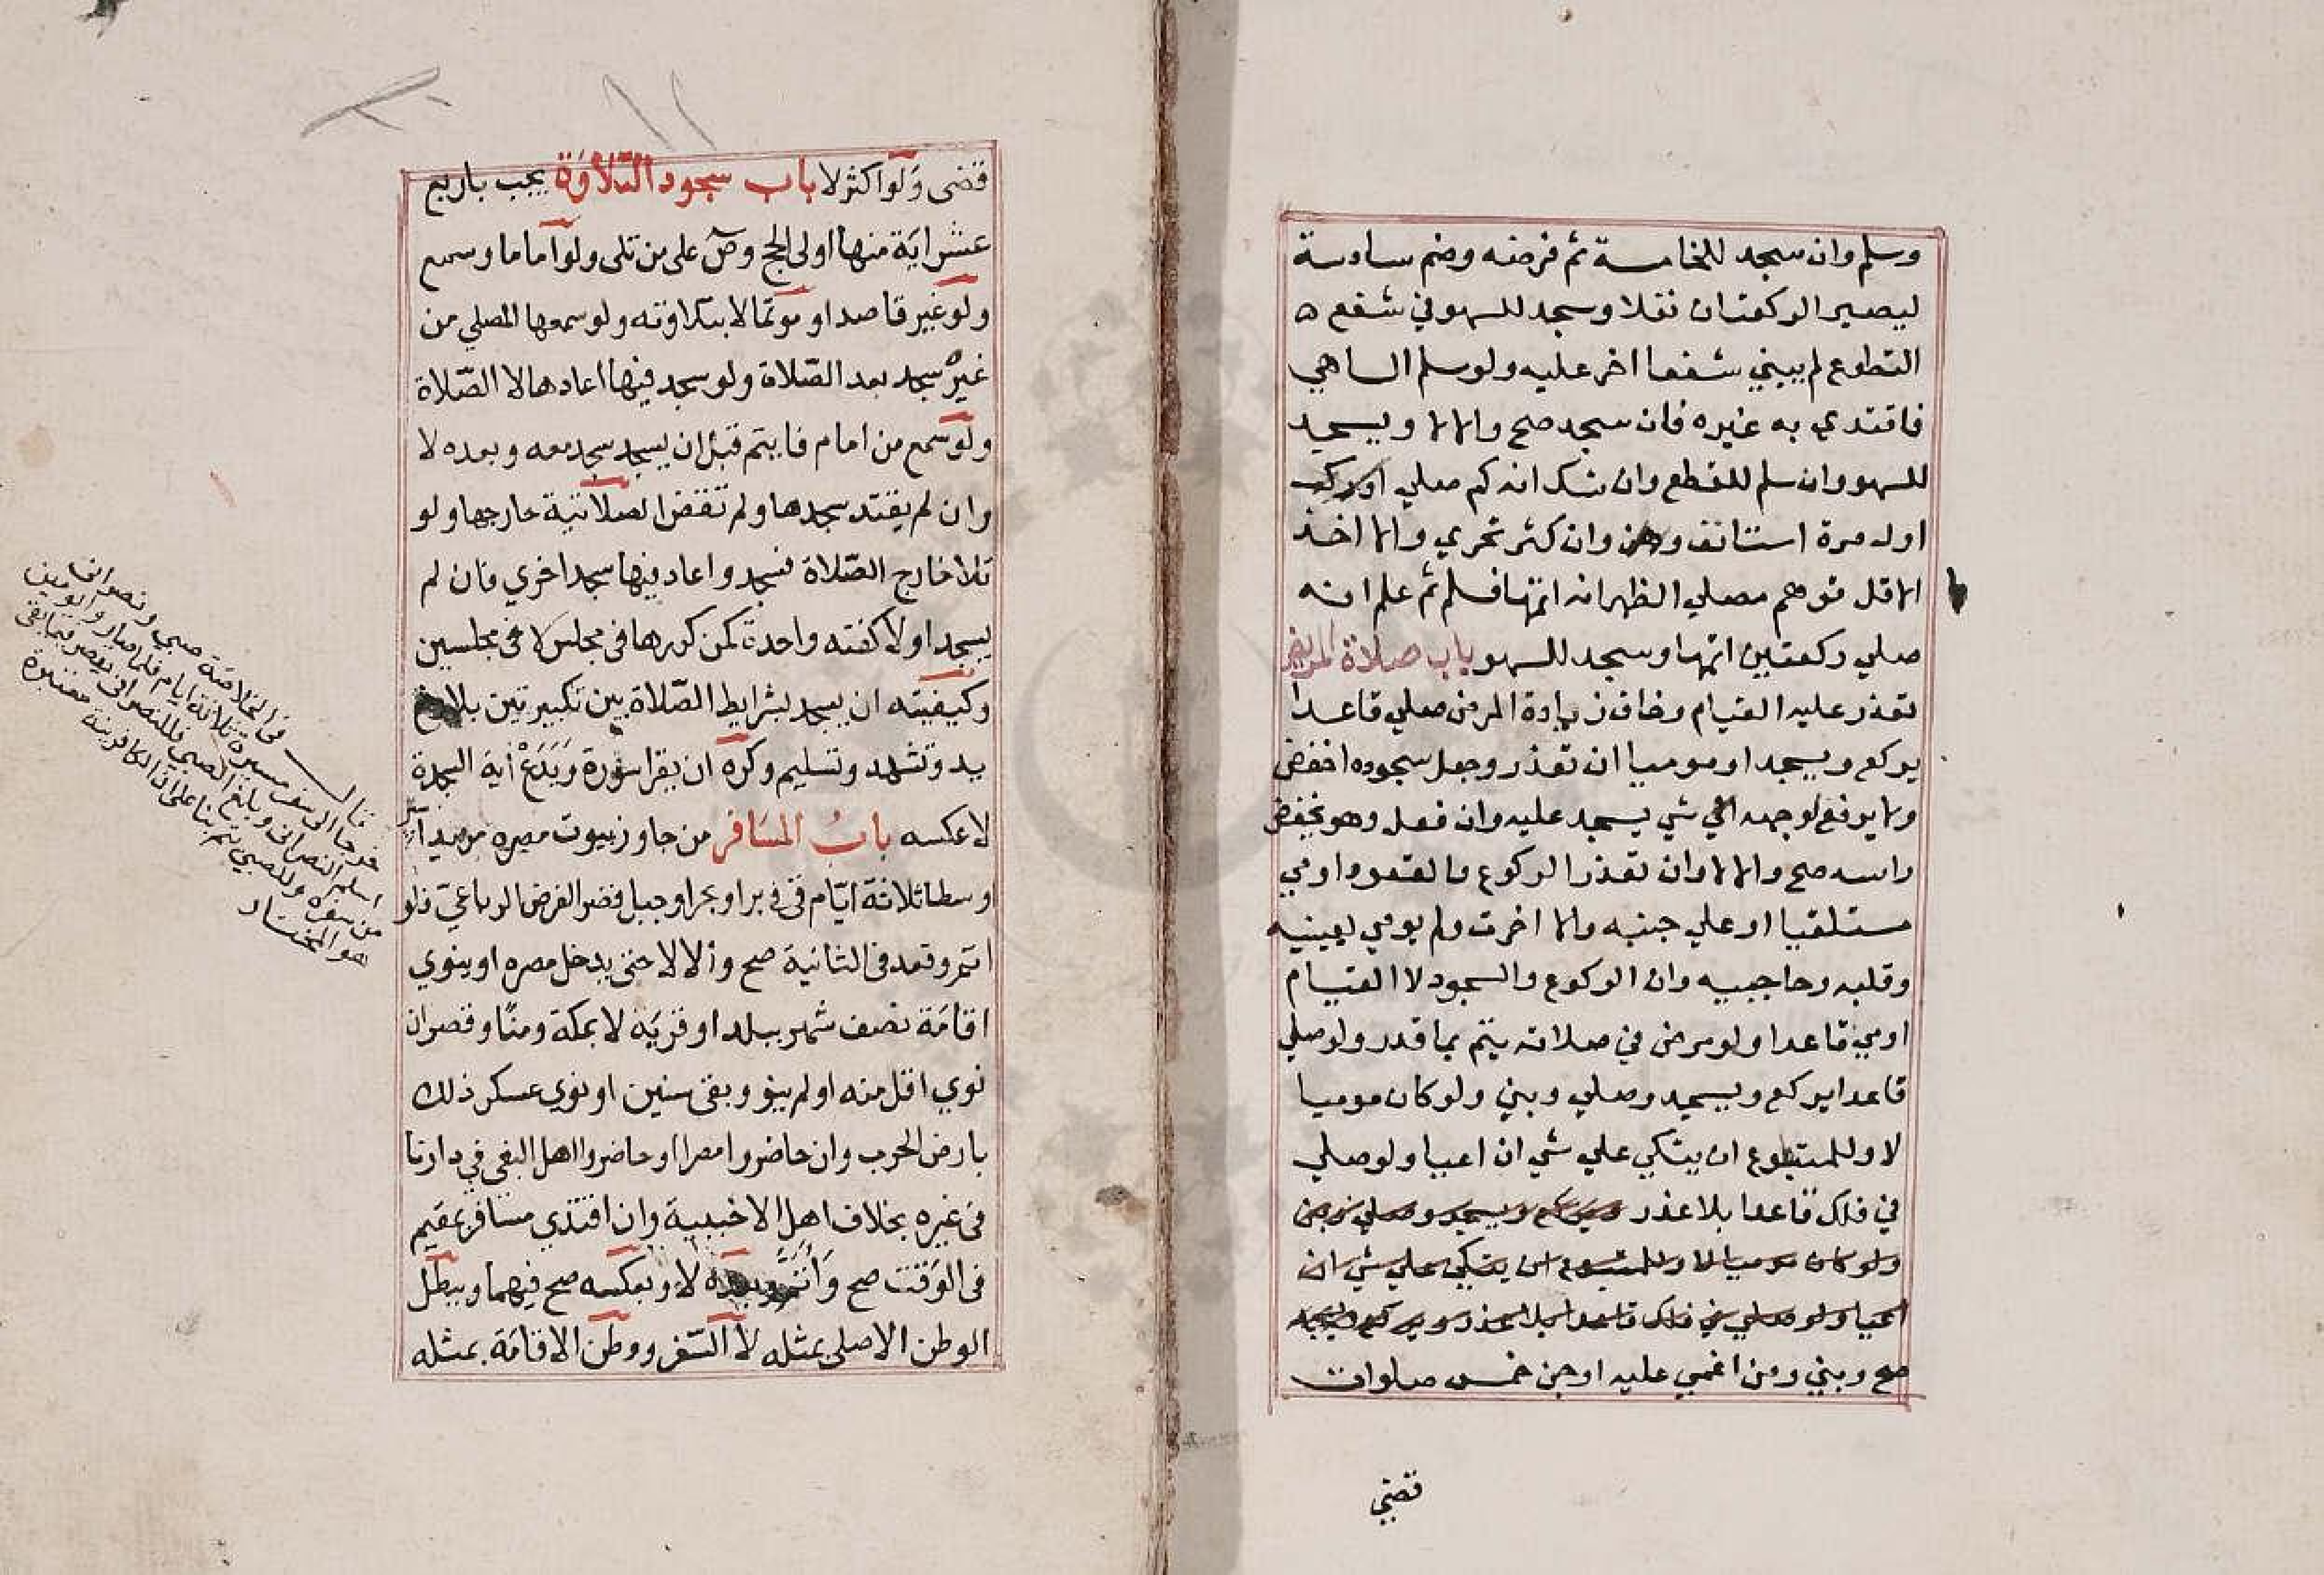 وسلم وان سجد للخامسة ثم فرضه وضم سادسة
ليصير الركعتان نفلا وسجد للسهو في شفع ه
التطوع لم يبني شفعا اخر عليه ولو سلم الساهي
فاقتدي به غيره فان سجد صح والا لا ويسجد
للسهو وان سلم للقطع وان شك انه كم صلي
اول مرة استانف وان كثر تحري والا اخذ
الاقل توهم مصلي الظهر انه اتمها فسلم ثم علم انه
صلي ركعتين اتمها وسجد للسهو باب صلاة المريض
تعذر عليه القيام وخاف زيادة المرض صلي قاعدا
يركع ويسجد او موميا ان تعذر وجعل سجوده اخفض
ولا يرفع لوجهه الي شي يسجد عليه وان فعل وهو يخفض
راسه صح والا لا وان تعذر الركوع والقعود اومي
مستلقيا او علي جنبه والا اخرت ولم يومي بعينيه
وقلبه وحاجبيه وان الركوع والسجود لا القيام
اومي قاعدا ولو مرض في صلاته يتم بما قدر ولو صلي
قاعدا يركع ويسجد وصلي وبني ولو كان موميا
لا وللمتطوع ان يتكي علي شي ان اعيا ولو صلي
في فلك قاعدا بلا عذر
ولو كان موميا لا وللمتطوع ان يتكي علي شي ان
اعيا ولو صلي في فلك قاعدا بلا عذر
صح وبني ومن اغمي عليه او جن خمس صلوات
قضي
قضى ولو اكثر لا باب سجود التلاوة يجب باربع
عشر اية منها اولى الحج وص على من تلى ولو اماما وسمع
ولو غير قاصد او موتما لا بتلاوته ولو سمعها المصلي من
غيره سجد بعد الصلاة ولو سجد فيها اعادها لا الصلاة
ولو سمع من امام فايتم قبل ان يسجد سجد معه وبعده لا
وان لم يقتد سجدها ولم تقض الصلاتية خارجها ولو
تلا خارج الصلاة فسجد واعاد فيها سجد اخري فان لم
يسجد اولا كفته واحدة كمن كررها في مجلس لا في مجلسين
وكيفيته ان يسجد بشرايط الصلاة بين تكبيرتين بلا رفع
يد وتشهد وتسليم وكره ان يقرا سورة ويدع اية السجدة
لا عكسه باب المسافر من جاوز بيوت مصره مريدا سير
وسطا ثلاثة ايام في بر او بحر او جبل قصر الفرض الرباعي فلو
اتم وقعد في الثانية صح والا لا حتى يدخل مصره او ينوي
اقامة نصف شهر ببلد او قرية لا بمكة ومنا وقصر ان
نوي اقل منه او لم ينو وبقى سنين او نوي عسكر ذلك
بارض الحرب وان حاضروا مصرا او حاضروا اهل البغي في دارنا
في غيره بخلاف اهل الاخبيية وان اقتدي مسافر بمقيم
في الوقت صح واتم وبعده لا وبعكسه صح فيهما ويبطل
الوطن الاصلي بمثله لا السفر ووطن الاقامة بمثله
قال في الخلاصة صبي ونصراني
خرجا الى سفر مسيرة ثلاثة ايام فلما صار واليومين
اسلم النصراني وبلغ الصبي فالنصراني يقصر فيما بقى
من سفره والصبي يتم بنا على ان الكافر نيته معتبرة
هو المختار